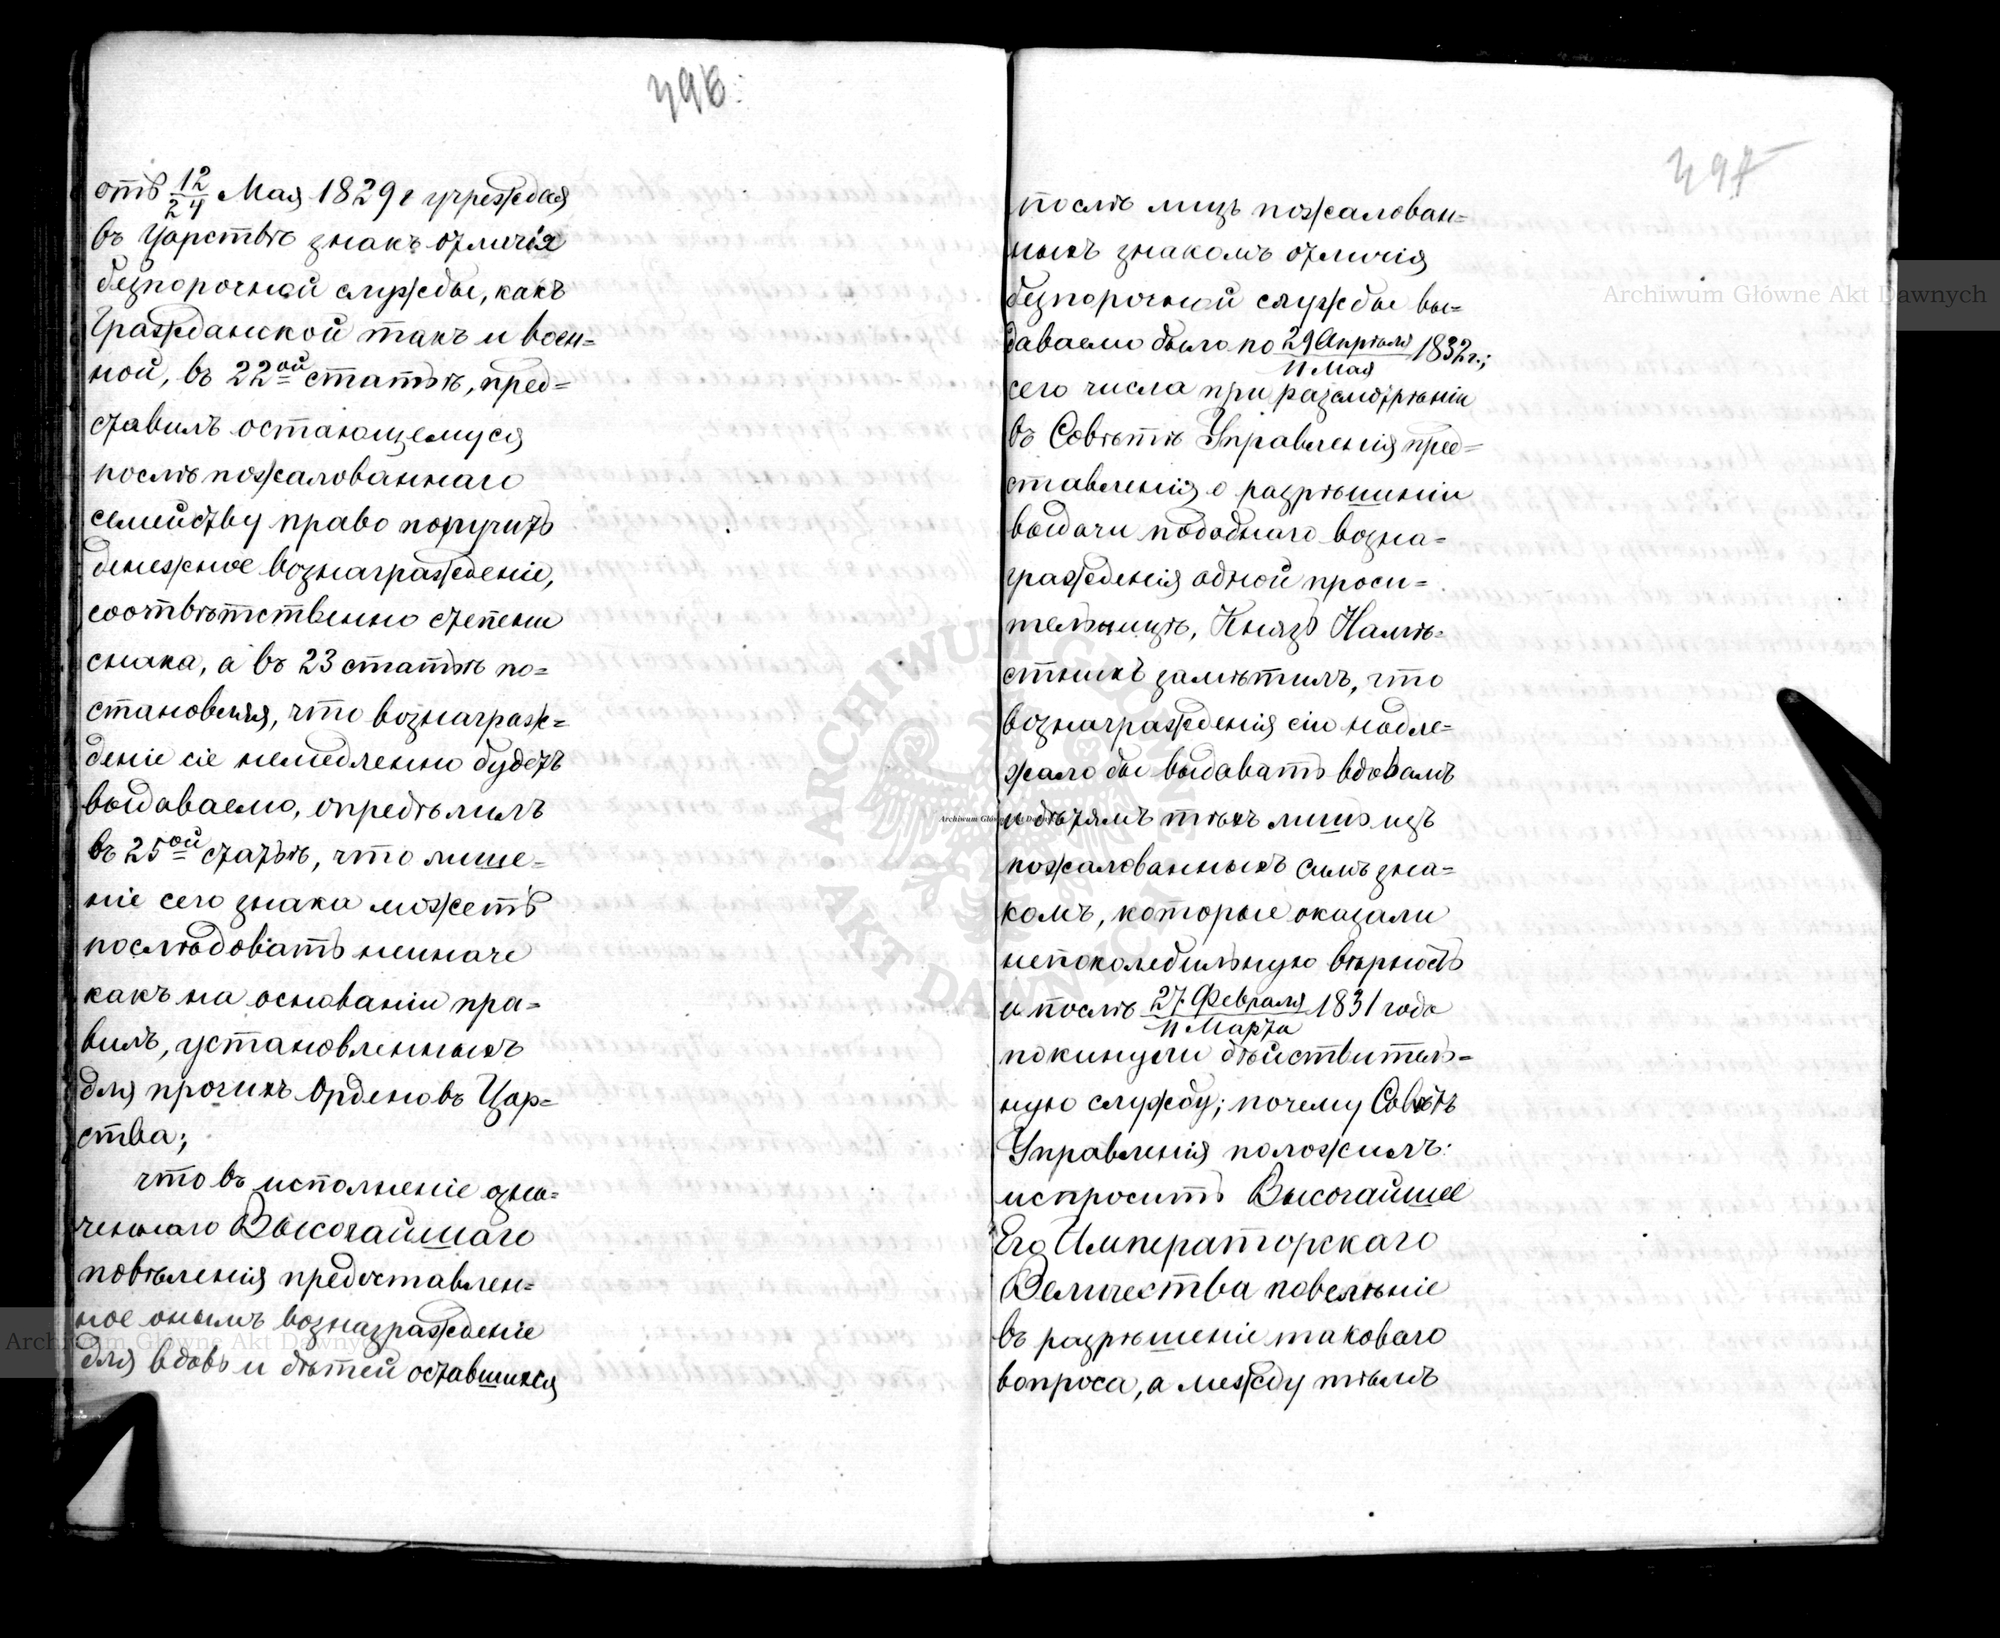 396.
отъ 12/24 Мая 1829 г учреждая
въ Царствѣ знакъ отличія
безпорочной службы, какъ
Гражданской такъ и воен=
ной, въ 22ой статьѣ, пред=
ставилъ остающемуся
послѣ пожалованнаго
семейству право получить
денежное вознагражденіе,
соотвѣтственно степени
снака, а въ 23 статьѣ по=
становляя, что вознаграж=
деніе сіе немедленно будетъ
выдаваемо, опредѣлилъ
въ 25ой статьѣ, что лише=
ніе сего знака можетъ
послѣдовать неиначе
какъ на основаніи пра=
вилъ, установленныхъ
для прочихъ Орденовъ Цар=
ства;
что въ исполненіе озна=
ченнаго Высочайшаго
повѣленія предоставлен=
ное онымъ вознагражденіе
для вдовъ и дѣтей оставшихся
397
послѣ лицъ пожалован=
ныхъ знакомъ отличія
безпорочной службы вы=
даваемо было по 29 Апрѣля/11 Мая 1832 г.;
сего числа при разсмотрѣніи
въ Совѣтѣ Управленія пред=
ставленія о разрѣшеніи
выдачи подобнаго возна=
гражденія одной проси=
тельницѣ, Князь Намѣ=
стникъ замѣтилъ, что
вознагражденія сіи надле=
жало бы выдавать вдовамъ
и дѣтямъ тѣхъ лишь изъ
пожалованныхъ симъ зна=
комъ, которые оказали
непоколебимую вѣрность
и послѣ 27 Февраля/11 Марта 1831 года
покинули дѣйствитель=
ную службу; почему Совѣтъ
Управленія положилъ:
испросить Высочайшее
Его Императорскаго
Величества повелѣніе
въ разрѣшеніе таковаго
вопроса, а между тѣмъ
Archiwum Główne Akt Dawnych
Archiwum Główne Akt Dawnych
Archiwum Główne Akt Dawnych
ARCHIWUM GŁÓWNE AKT DAWNYCH